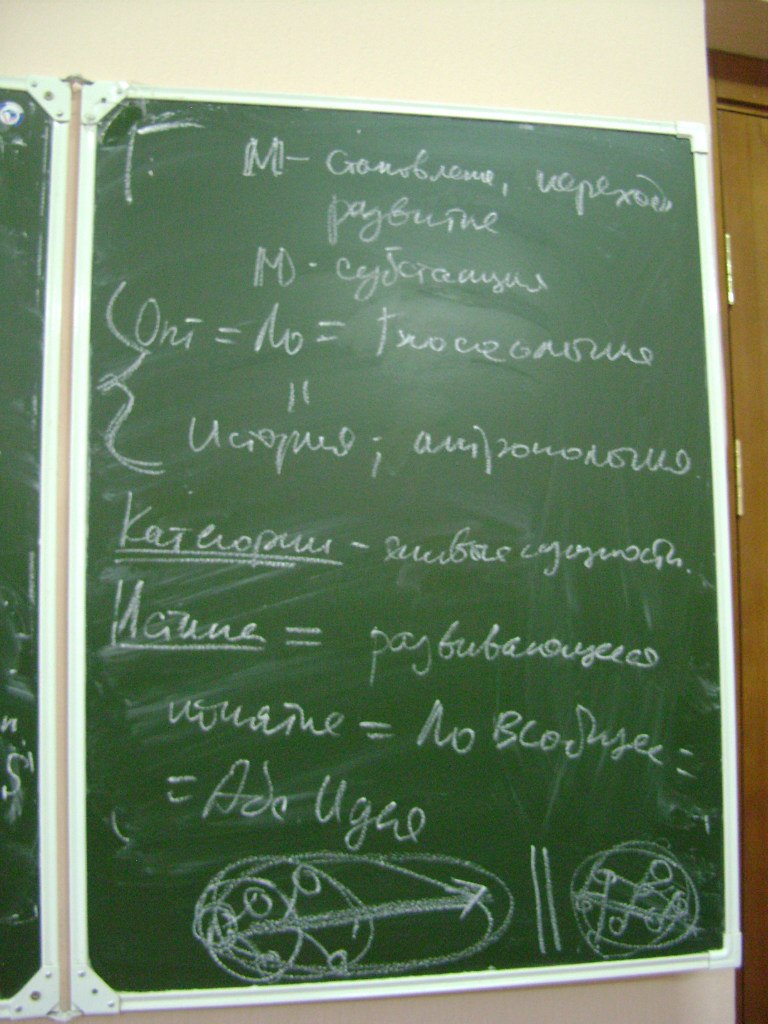 Г.
М - становление, переход
развитие
М - субстанция
Онт = Ло = Гносеология
"
История; антропология
Категории - живые сущности.
Истина = развивающееся
понятие = Ло всобщее =
= Абс Идея